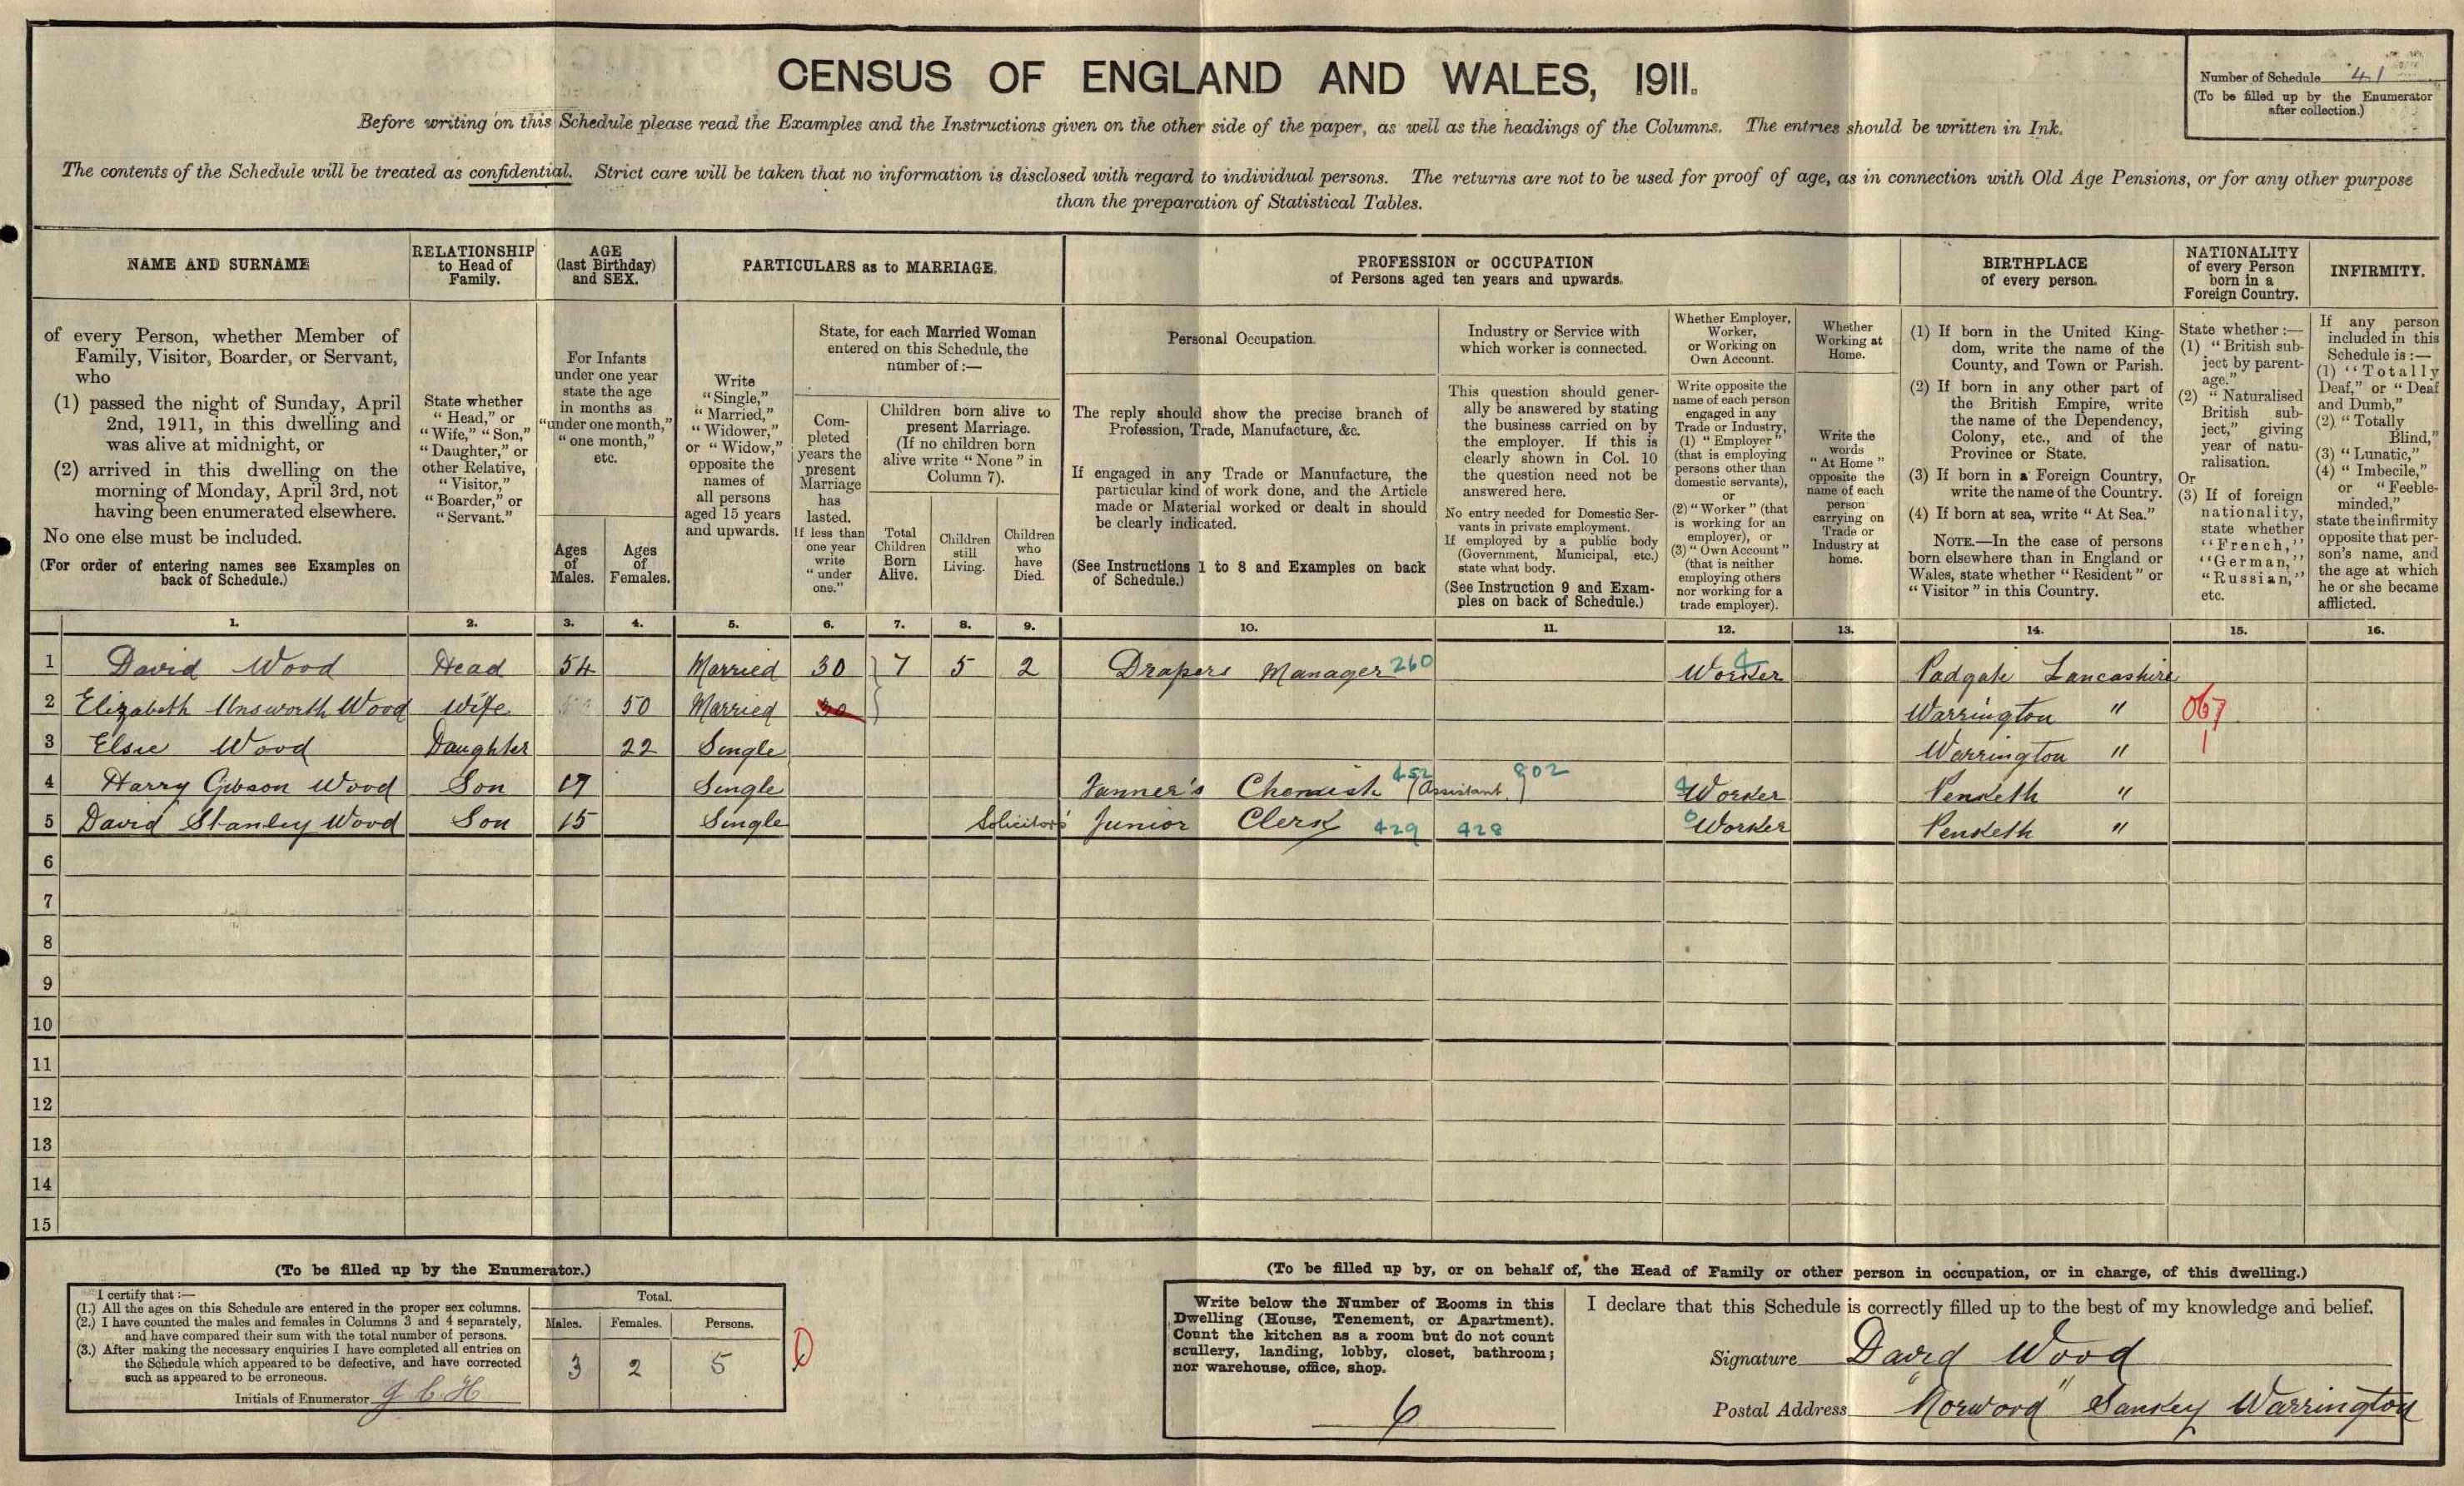 CENSUS OF ENGLAND AND WALES, 1911.
Number of Schedule 41
(To be filled up by the Enumerator
after collection.)
Before writing on this Schedule please read the Examples and the Instructions given on the other side of the paper, as well as the headings of the Columns. The entries should be written in Ink.
The contents of the Schedule will be treated as confidential. Strict care will be taken that no information is disclosed with regard to individual persons. The returns are not to be used for proof of age, as in connection with Old Age Pensions, or for any other purpose
than the preparation of Statistical Tables.
NAME AND SURNAME
of every Person, whether Member of
Family, Visitor, Boarder, or Servant,
who
(1) passed the night of Sunday, April
2nd, 1911, in this dwelling and
was alive at midnight, or
(2) arrived in this dwelling on the
morning of Monday, April 3rd, not
having been enumerated elsewhere.
No one else must be included.
(For order of entering names see Examples on
back of Schedule.)
RELATIONSHIP
to Head of
Family.
State whether
"Head," or
"Wife," "Son,"
"Daughter," or
other Relative,
"Visitor,"
"Boarder," or
"Servant."
AGE
(last Birthday)
and SEX.
For Infants
under one year
state the age
in months as
"under one month,"
"one month,"
etc.
Ages
of
Males.
Ages
of
Females.
PARTICULARS as to MARRIAGE.
Write
"Single,"
"Married,"
"Widower,"
or "Widow,"
opposite the
names of
all persons
aged 15 years
and upwards.
State, for each Married Woman
entered on this Schedule, the
number of:—
Com-
pleted
years the
present
Marriage
has
lasted.
If less than
one year
write
"under
one."
Children born alive to
present Marriage.
(If no children born
alive write "None" in
Column 7).
Total
Children
Born
Alive.
Children
still
Living.
Children
who
have
Died.
PROFESSION or OCCUPATION
of Persons aged ten years and upwards.
Personal Occupation.
The reply should show the precise branch of
Profession, Trade, Manufacture, &c.
If engaged in any Trade or Manufacture, the
particular kind of work done, and the Article
made or Material worked or dealt in should
be clearly indicated.
(See Instructions 1 to 8 and Examples on back
of Schedule.)
Industry or Service with
which worker is connected.
This question should gener-
ally be answered by stating
the business carried on by
the employer. If this is
clearly shown in Col. 10
the question need not be
answered here.
No entry needed for Domestic Ser-
vants in private employment.
If employed by a public body
(Government, Municipal, etc.)
state what body.
(See Instruction 9 and Exam-
ples on back of Schedule.)
Whether Employer,
Worker,
or Working on
Own Account.
Write opposite the
name of each person
engaged in any
Trade or Industry,
(1) "Employer"
(that is employing
persons other than
domestic servants),
or
(2) "Worker" (that
is working for an
employer), or
(3) "Own Account"
(that is neither
employing others
nor working for a
trade employer).
Whether
Working at
Home.
Write the
words
"At Home"
opposite the
name of each
person
carrying on
Trade or
Industry at
home.
BIRTHPLACE
of every person.
(1) If born in the United King-
dom, write the name of the
County, and Town or Parish.
(2) If born in any other part of
the British Empire, write
the name of the Dependency,
Colony, etc., and of the
Province or State.
(3) If born in a Foreign Country,
write the name of the Country.
(4) If born at sea, write "At Sea."
NOTE.—In the case of persons
born elsewhere than in England or
Wales, state whether "Resident" or
"Visitor" in this Country.
NATIONALITY
of every Person
born in a
Foreign Country.
State whether:—
(1) "British sub-
ject by parent-
age."
(2) "Naturalised
British sub-
ject," giving
year of natu-
ralisation.
Or
(3) If of foreign
nationality,
state whether
"French,"
"German,"
"Russian,"
etc.
INFIRMITY.
If any person
included in this
Schedule is:—
(1) "Totally
Deaf," or "Deaf
and Dumb,"
(2) "Totally
Blind,"
(3) "Lunatic,"
(4) "Imbecile,"
or "Feeble-
minded,"
state the infirmity
opposite that per-
son's name, and
the age at which
he or she became
afflicted.
1. 2. 3. 4. 5. 6. 7. 8. 9. 10. 11. 12. 13. 14. 15. 16.
1 David Wood Head 54 Married 30 7 5 2 Drapers Manager 260 Worker Padgate Lancashire
2 Elizabeth Unsworth Wood Wife 50 Married 30 Warrington " 067
3 Elsie Wood Daughter 22 Single Warrington " 1
4 Harry Gibson Wood Son 17 Single Tanner's Chemist (Assistant) 452 902 Worker Penketh "
5 David Stanley Wood Son 15 Single Solicitors' Junior Clerk 429 428 Worker Penketh "
6
7
8
9
10
11
12
13
14
15
(To be filled up by the Enumerator.)
I certify that:—
(1.) All the ages on this Schedule are entered in the proper sex columns.
(2.) I have counted the males and females in Columns 3 and 4 separately,
and have compared their sum with the total number of persons.
(3.) After making the necessary enquiries I have completed all entries on
the Schedule which appeared to be defective, and have corrected
such as appeared to be erroneous.
Initials of Enumerator
Total.
Males. Females. Persons.
3 2 5
(To be filled up by, or on behalf of, the Head of Family or other person in occupation, or in charge, of this dwelling.)
Write below the Number of Rooms in this
Dwelling (House, Tenement, or Apartment).
Count the kitchen as a room but do not count
scullery, landing, lobby, closet, bathroom;
nor warehouse, office, shop.
6
I declare that this Schedule is correctly filled up to the best of my knowledge and belief.
Signature David Wood
Postal Address "Norwood" Sankey Warrington